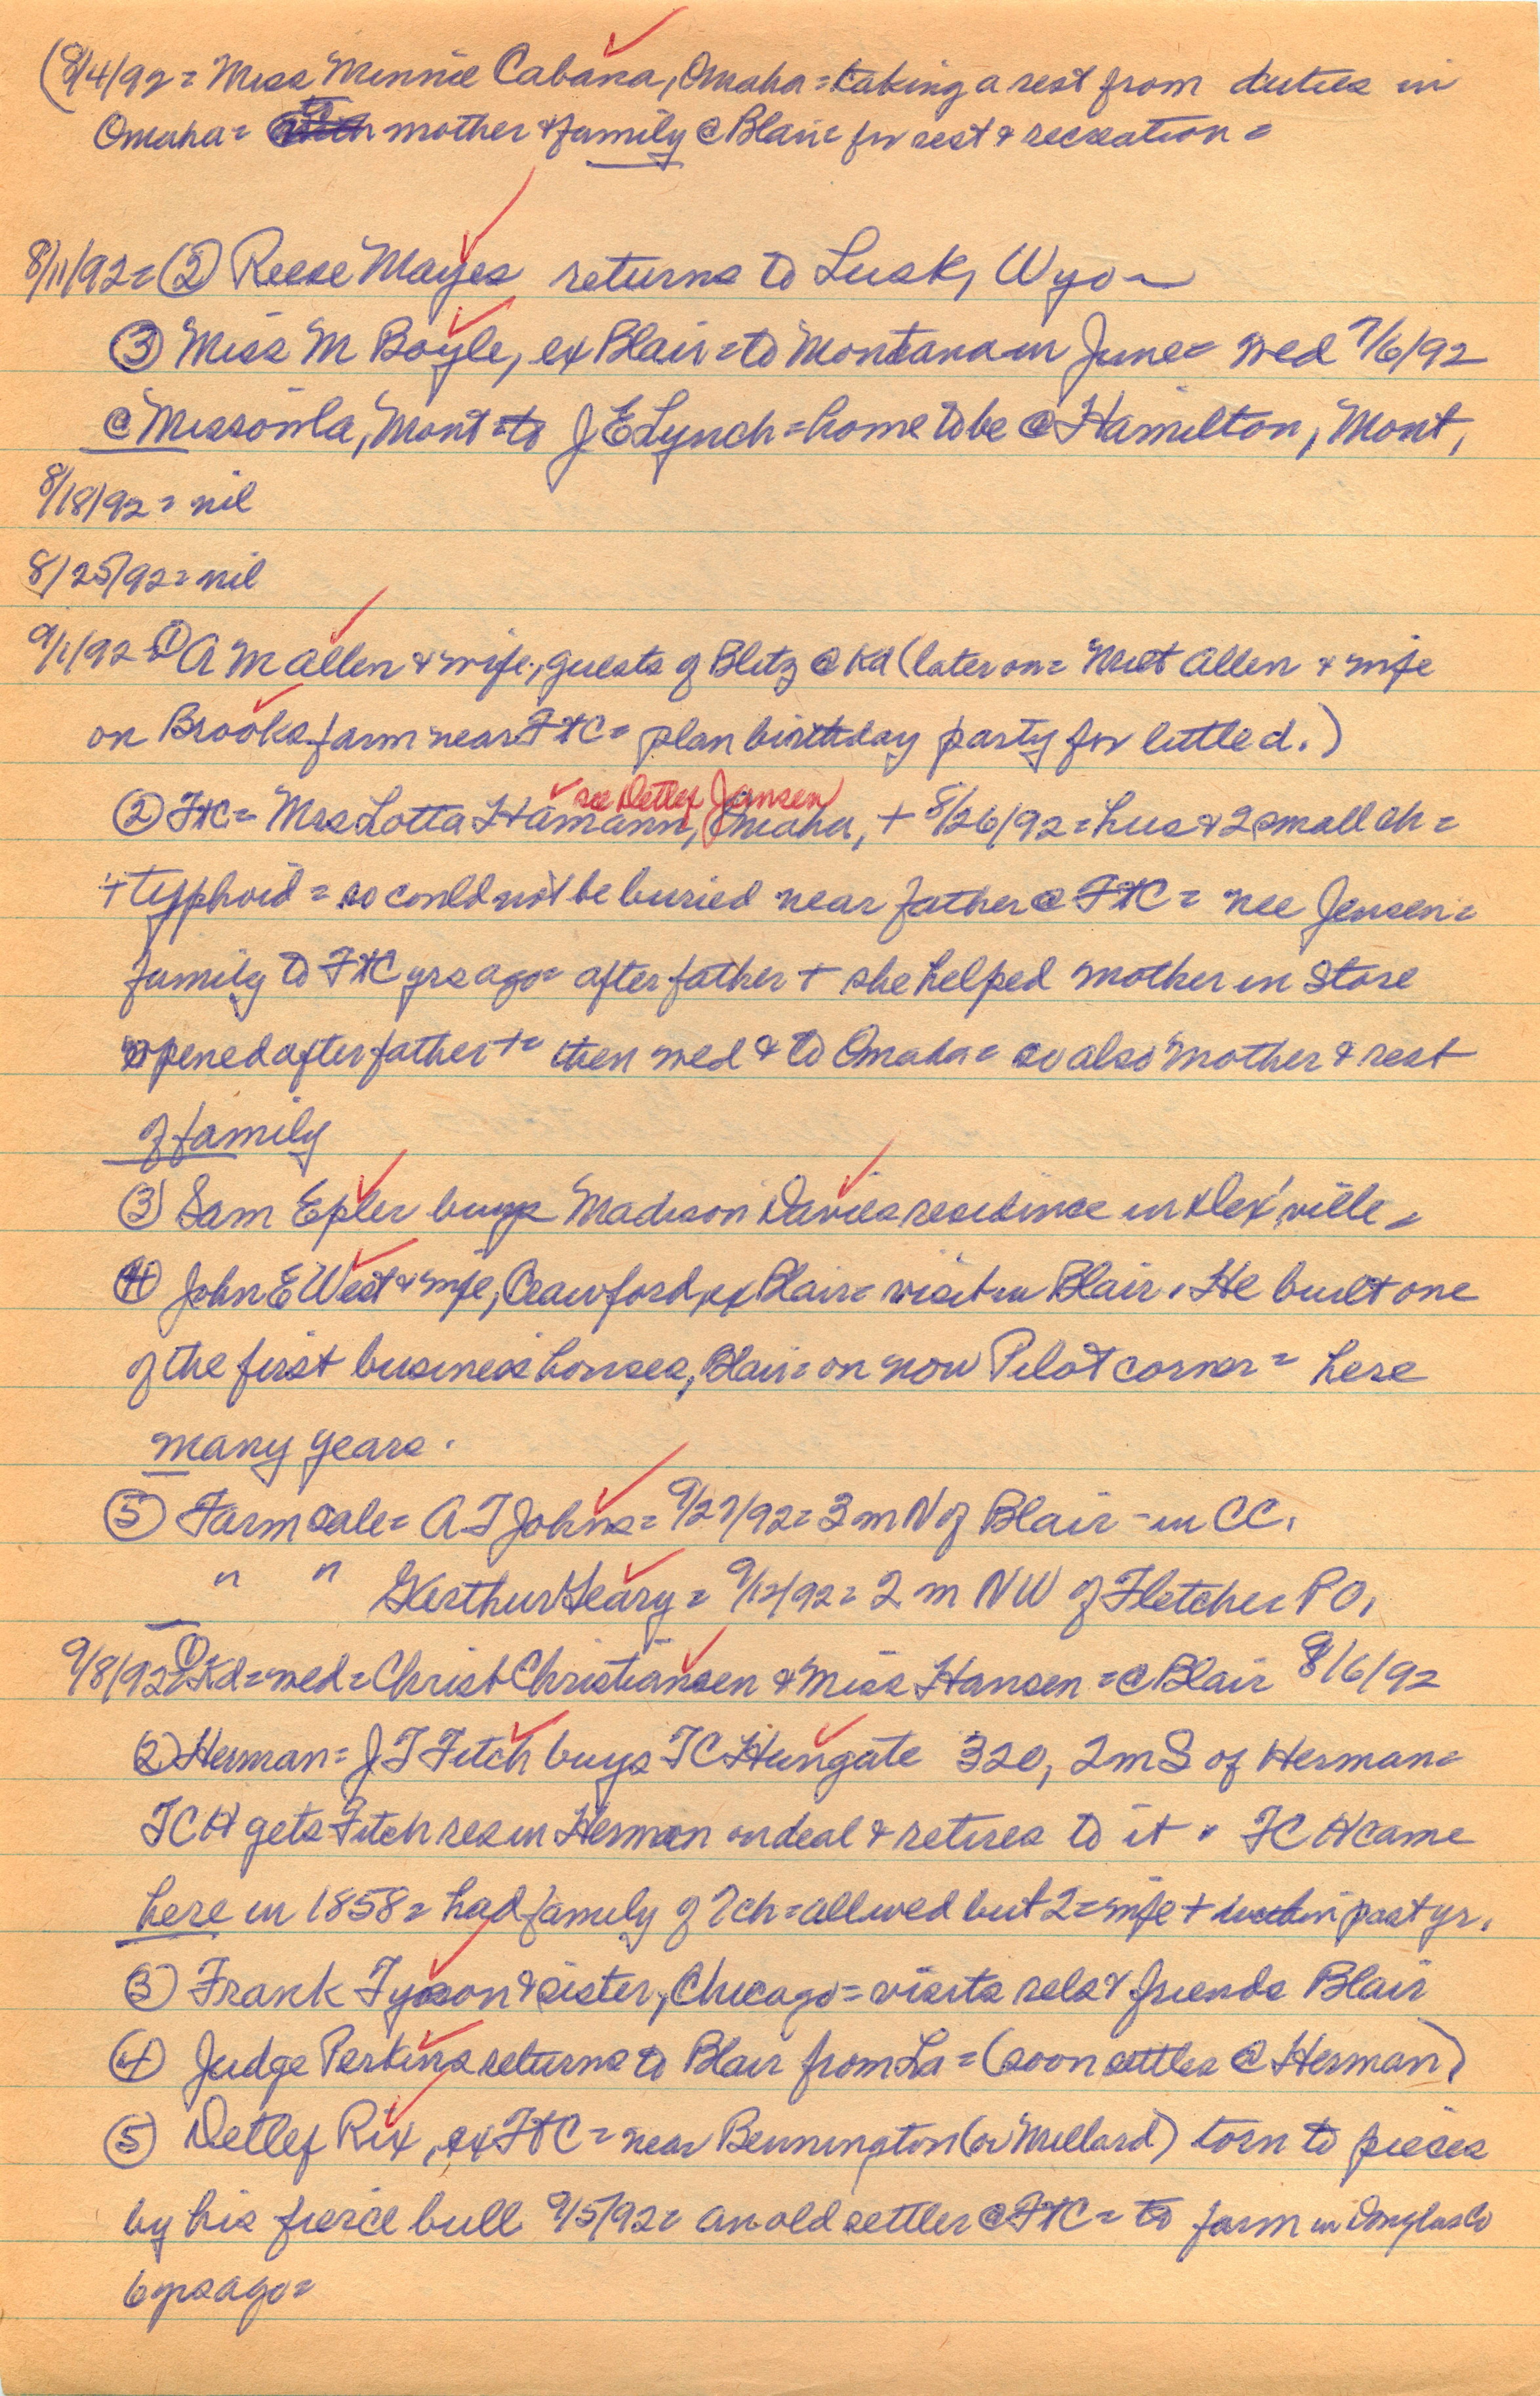 (8/4/92 = Miss Minnie Cabana, Omaha = taking a rest from duties in
Omaha = mother & family @ Blair = for rest & recreation =
8/11/92 = (2) Reese Mayes returns to Lusk, Wyo
(3) Miss M Boyle, ex Blair = to Montana in June = wed 7/6/92
@ Missoula, Mont = to J E Lynch = home to be @ Hamilton, Mont,
8/18/92 = nil
8/25/92 = nil
9/1/92 = (1) A M Allen & wife, guests of Blitz @ Kd (later on = Allen & wife
on Brooks farm near FtC = plan birthday party for little d.)
see Detlef Jensen
(2) FtC = Mrs Lotta Hamann, Omaha, + 8/26/92 = hus & 2 small ch =
+ typhoid = so could not be buried near father @ FtC = nee Jensen =
family to FtC yrs ago = after father + she helped mother in store
opened after father + = then wed & to Omaha = so also mother & rest
of family
(3) Sam Epler buys Madison Davies residence in Dex'ville =
(4) John E West & wife, Crawford, ex Blair = visit in Blair. He built one
of the first business houses, Blair = on now Pilot corner = here
many years.
(5) Farm sale = A T Johns = 9/27/92 = 3 m N of Blair - in CC.
" " Leary = 9/12/92 = 2 m NW of Fletcher PO,
9/8/92 = (1) Kd = wed = Christ Christiansen & Miss Hansen = @ Blair 8/6/92
(2) Herman = J T Fitch buys TC Hungate 320, 2 m S of Herman =
TCH gets Fitch res in Herman on deal & retires to it. TCH came
here in 1858 = had family of 7 ch = all wed but 2 = wife + within past yr,
(3) Frank Tyson & sister, Chicago = visits rels & friends Blair
(4) Judge Perkins returns to Blair from La = (soon settles @ Herman)
(5) Detlef Rix, ex FtC = near Bennington (or Millard) torn to pieces
by his fierce bull 9/5/92 = an old settler @ FtC = to farm in Douglas Co
6 yrs ago =